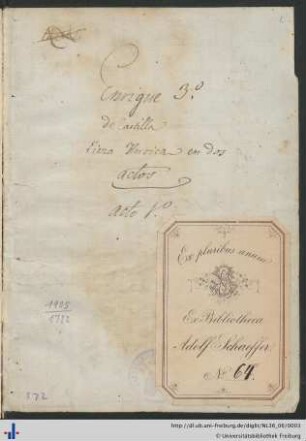 Enrique 3.º
de Castilla
Pieza Heroica en dos
actos
acto 1.º
Ex pluribus unum
Ex Bibliotheca
Adolf Schaeffer.
No 64.
572
http://dl.ub.uni-freiburg.de/diglit/NL38_06/0003
© Universitätsbibliothek Freiburg